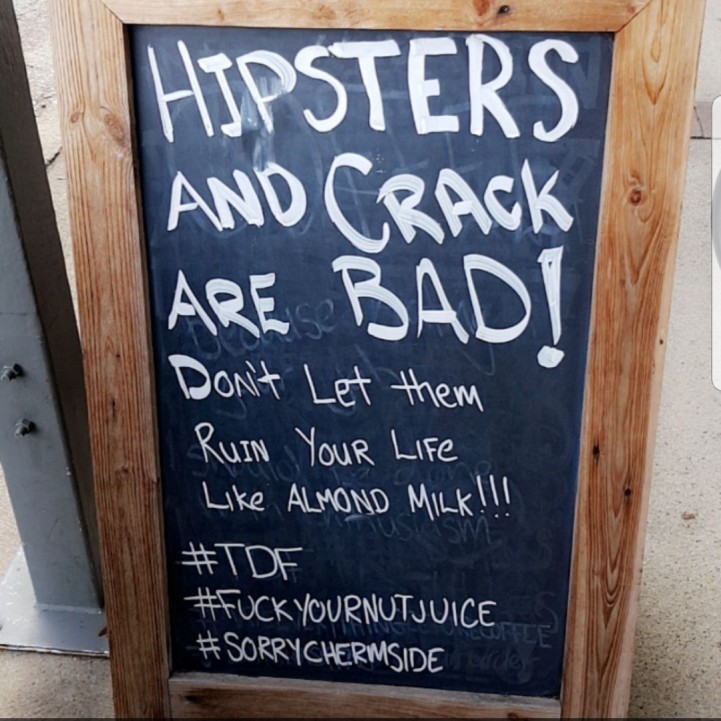 HIPSTERS
AND CRACK
ARE BAD!
Don't Let them
RUIN YOUR LIFE
Like ALMOND MILK!!!
#TDF
#FUCKYOURNUTJUICE
#SORRYCHERMSIDE